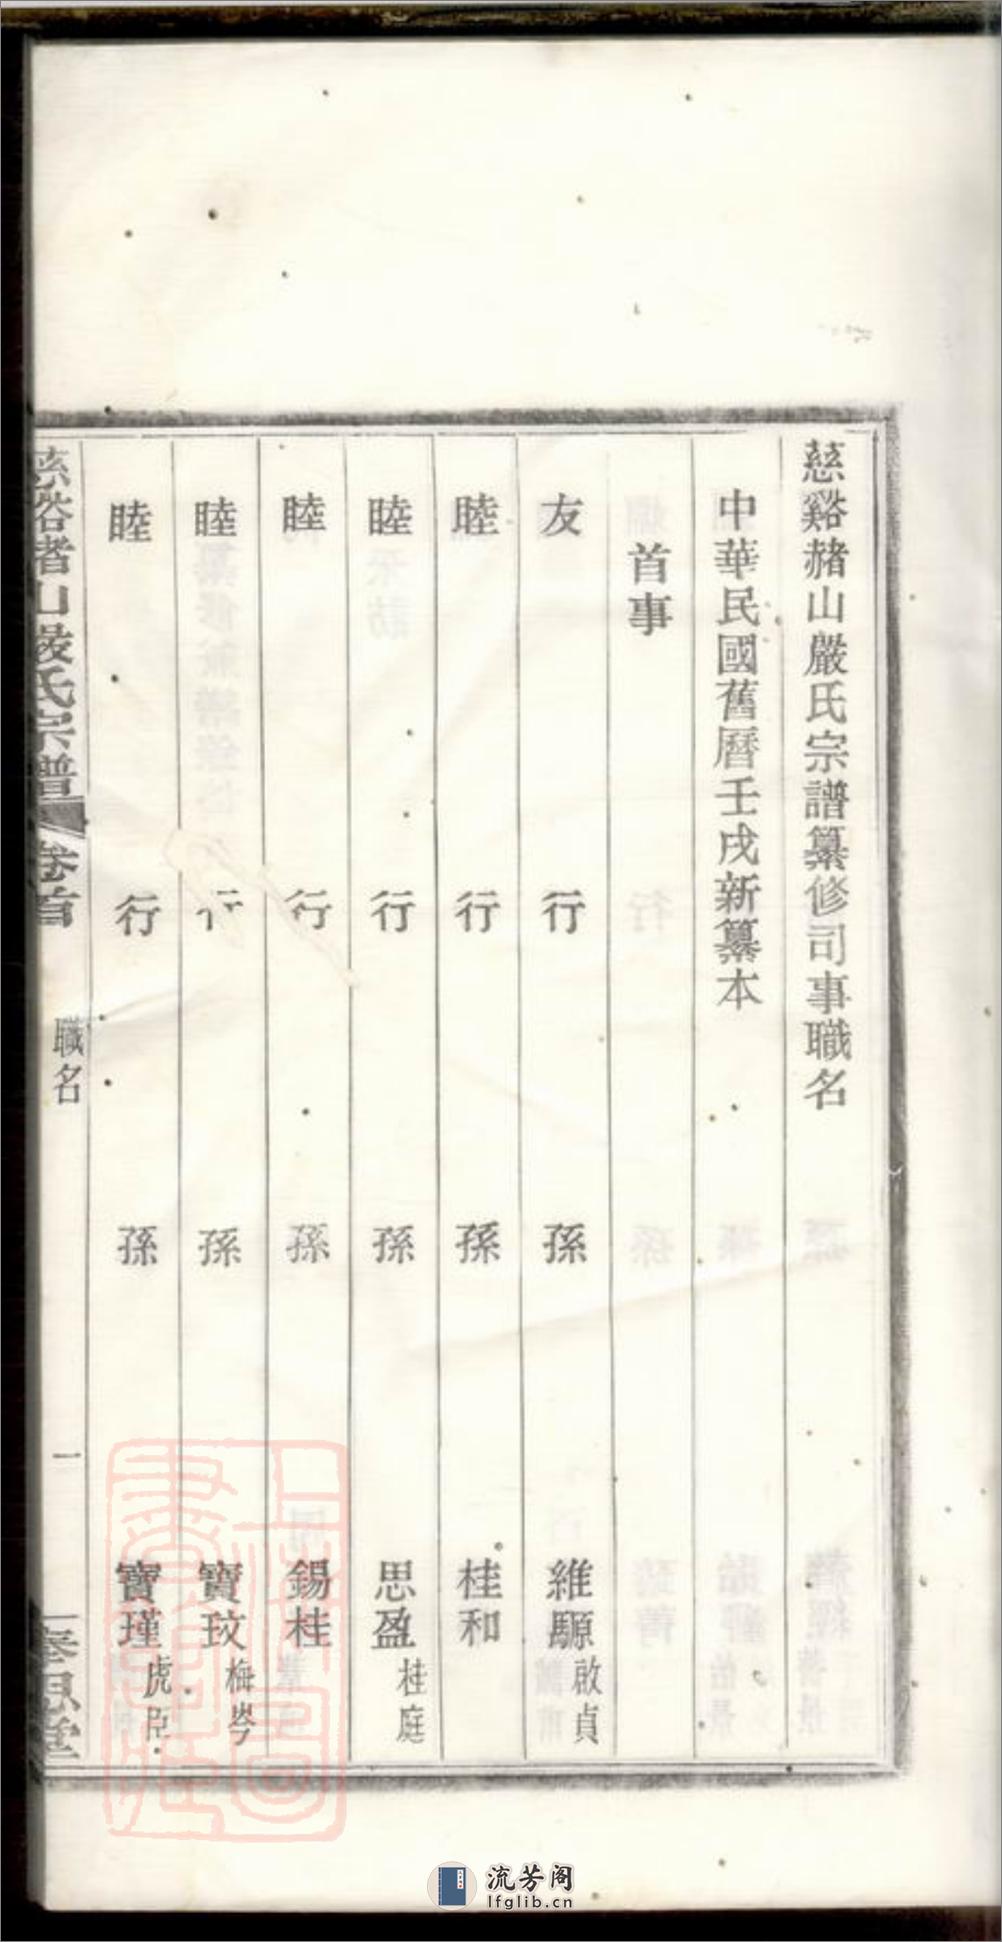 慈谿赭山嚴氏宗譜纂修司事職名
中華民國舊曆壬戌新纂本
首事
友行孫維騵啟貞
睦行孫桂和
睦行孫思盈桂庭
睦行孫錫桂
睦行孫寶玟梅岑
睦行孫寶瑾虎臣
慈谿赭山嚴氏宗譜 卷首 職名 一
流芳阁
lfglib.cn